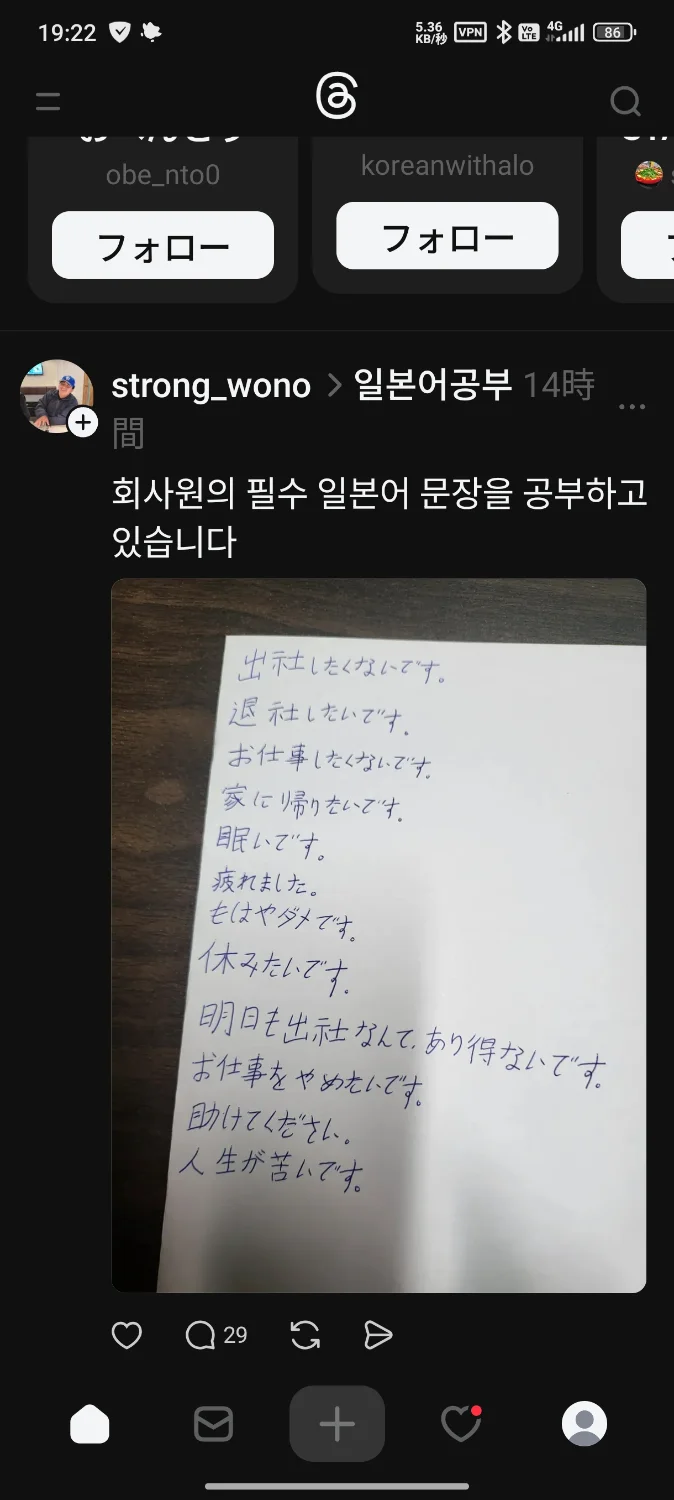 19:22
5.36
KB/秒
VPN
Vo
LTE
4G
86
obe_nto0
koreanwithalo
フォロー
フォロー
strong_wono > 일본어공부 14時
間
회사원의 필수 일본어 문장을 공부하고
있습니다
出社したくないです。
退社したいです。
お仕事したくないです。
家に帰りたいです。
眠いです。
疲れました。
もはやダメです。
休みたいです。
明日も出社なんて、あり得ないです。
お仕事をやめたいです。
助けてください。
人生が苦いです。
29